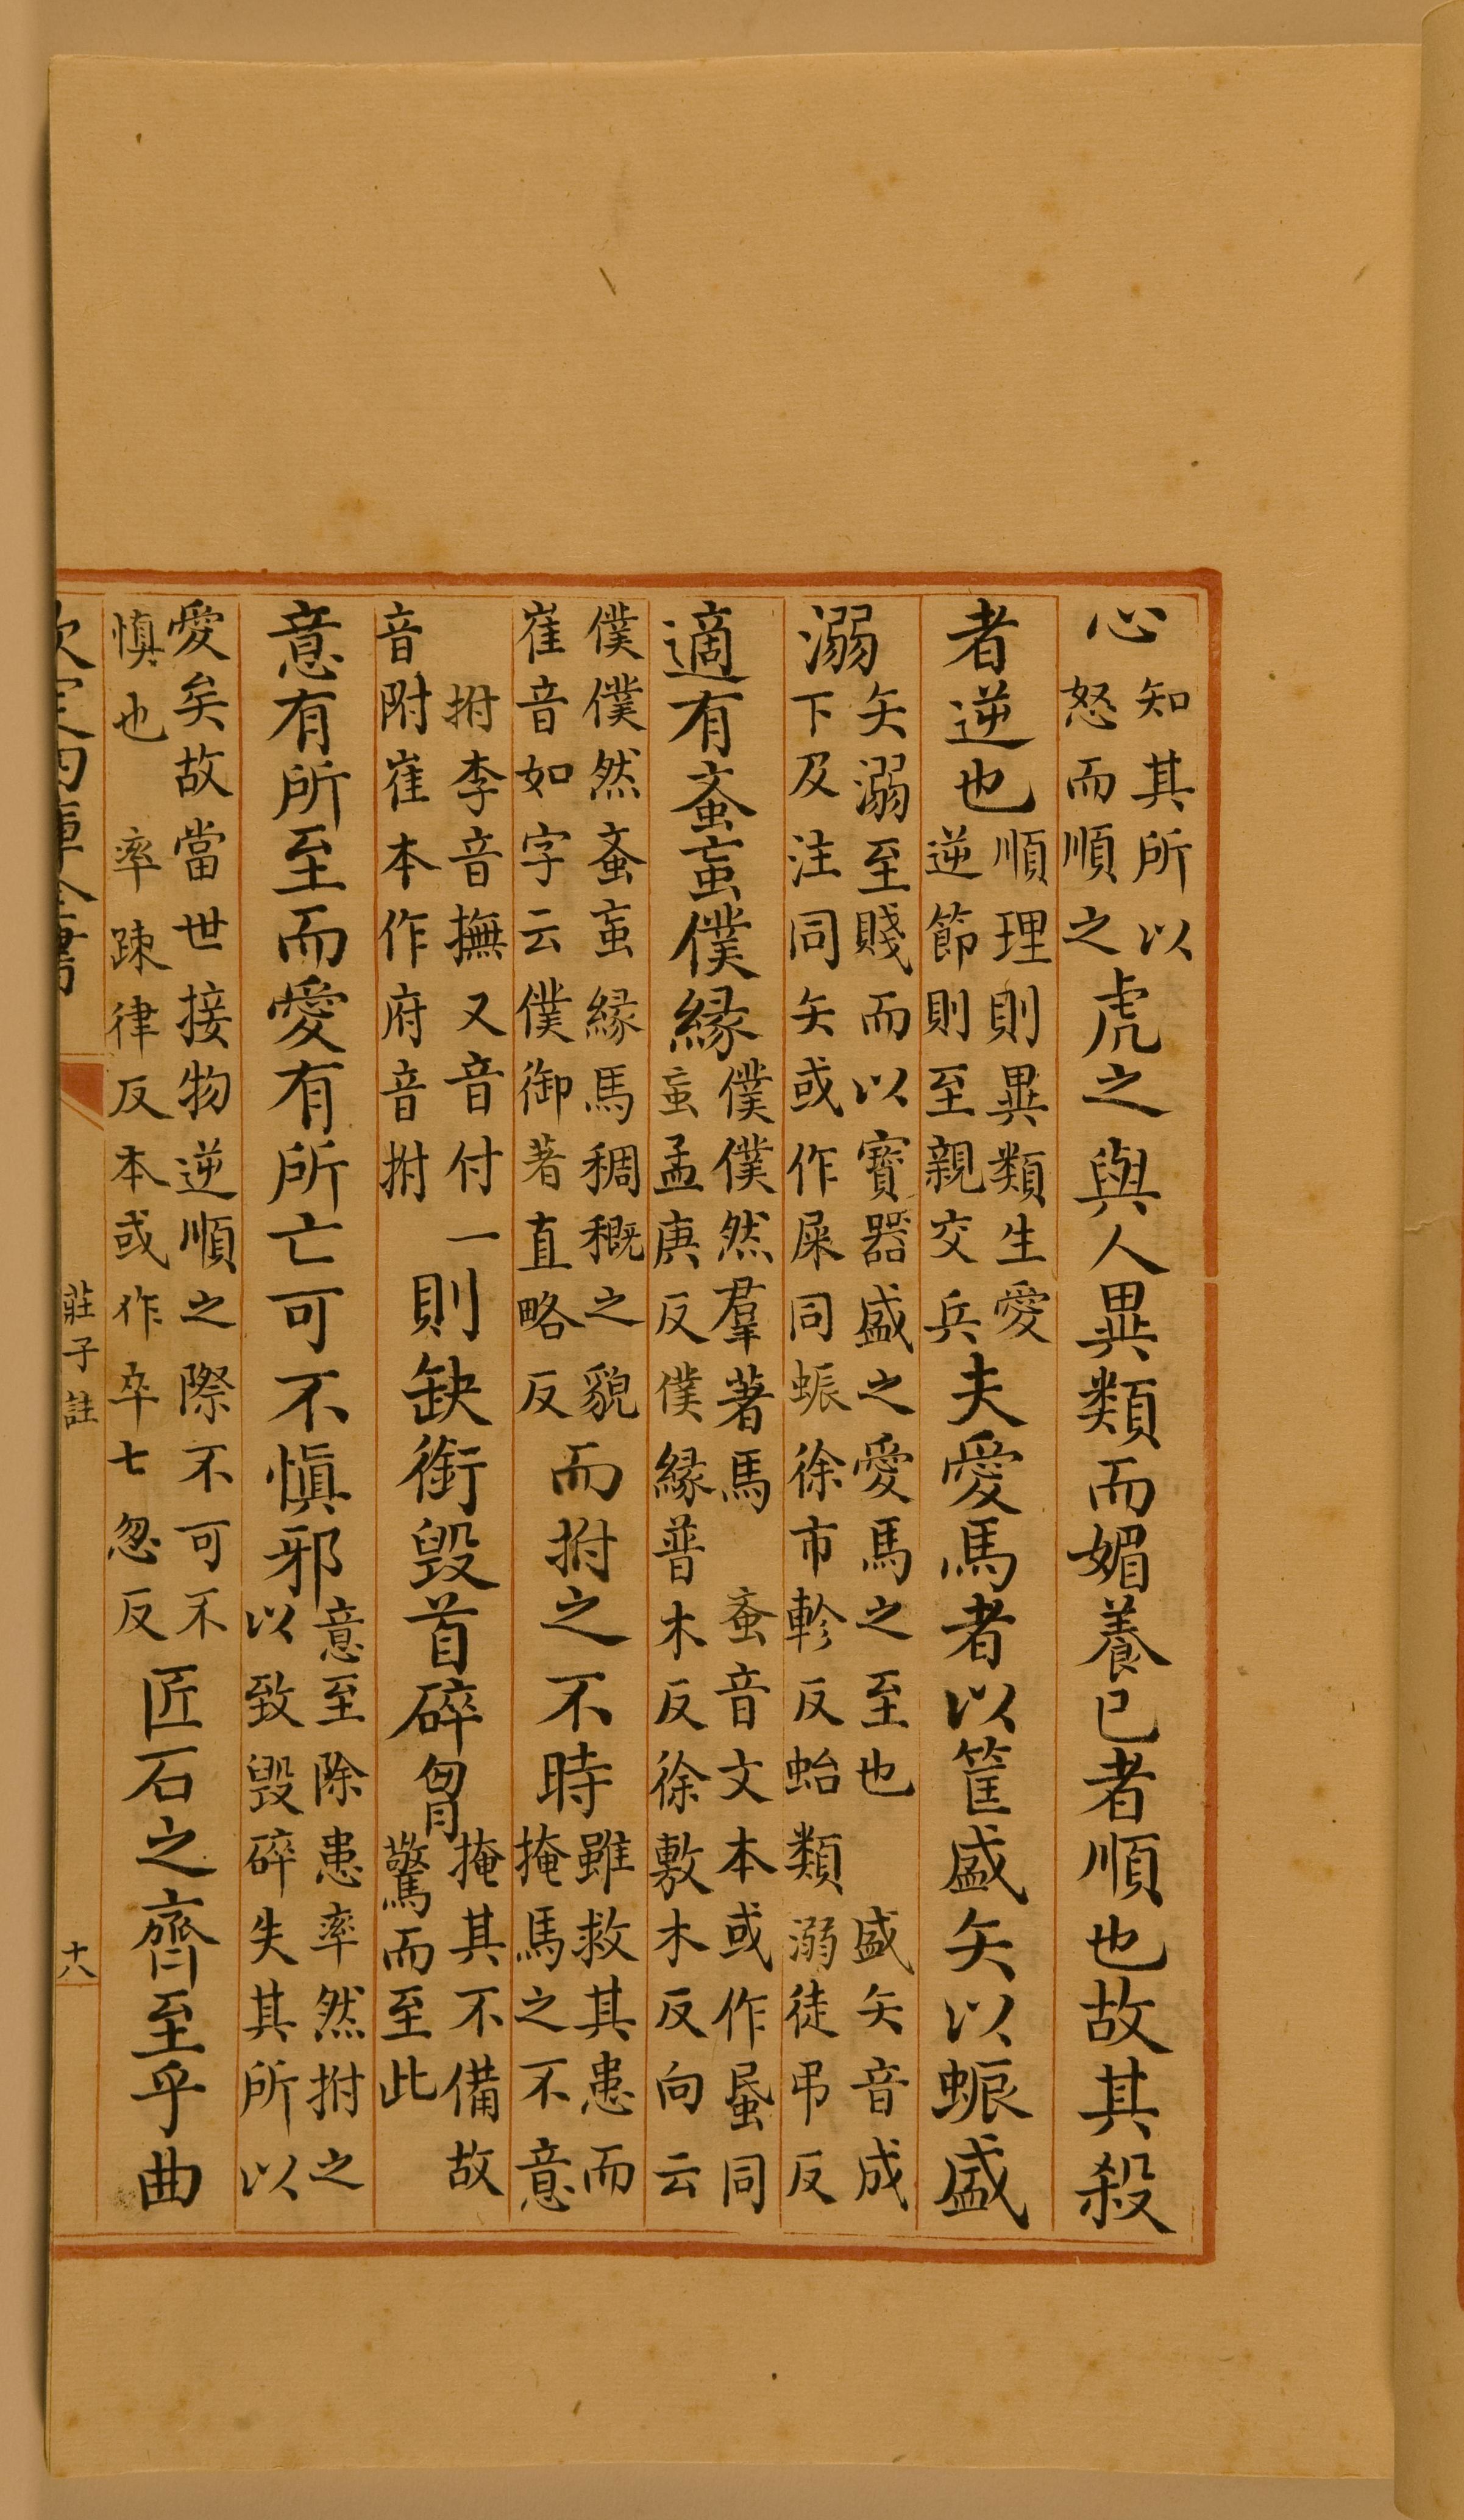 心知其所以怒而順之虎之與人異類而媚養已者順也故其殺
者逆也順理則異類生愛逆節則至親交兵夫愛馬者以筐盛矢以蜄盛
溺矢溺至賤而以寳器盛之愛馬之至也盛矢音成下及注同矢或作屎同蜄徐市軫反蛤類溺徒弔反
適有蚉䖟僕緣僕僕然羣著馬蚉音文本或作䘇同䖟孟庚反僕緣普木反徐敷木反向云
僕僕然蚉䖟緣馬稠穊之貌崔音如字云僕御著直略反而拊之不時雖救其患而掩馬之不意
拊李音撫又音付一音附崔本作府音拊則缺銜毀首碎胷掩其不備故驚而至此
意有所至而愛有所亡可不慎邪意至除患率然拊之以致毀碎失其所以
愛矣故當世接物逆順之際不可不慎也率疎律反本或作卒七忽反匠石之齊至乎曲
欽定四庫全書
莊子註
十八